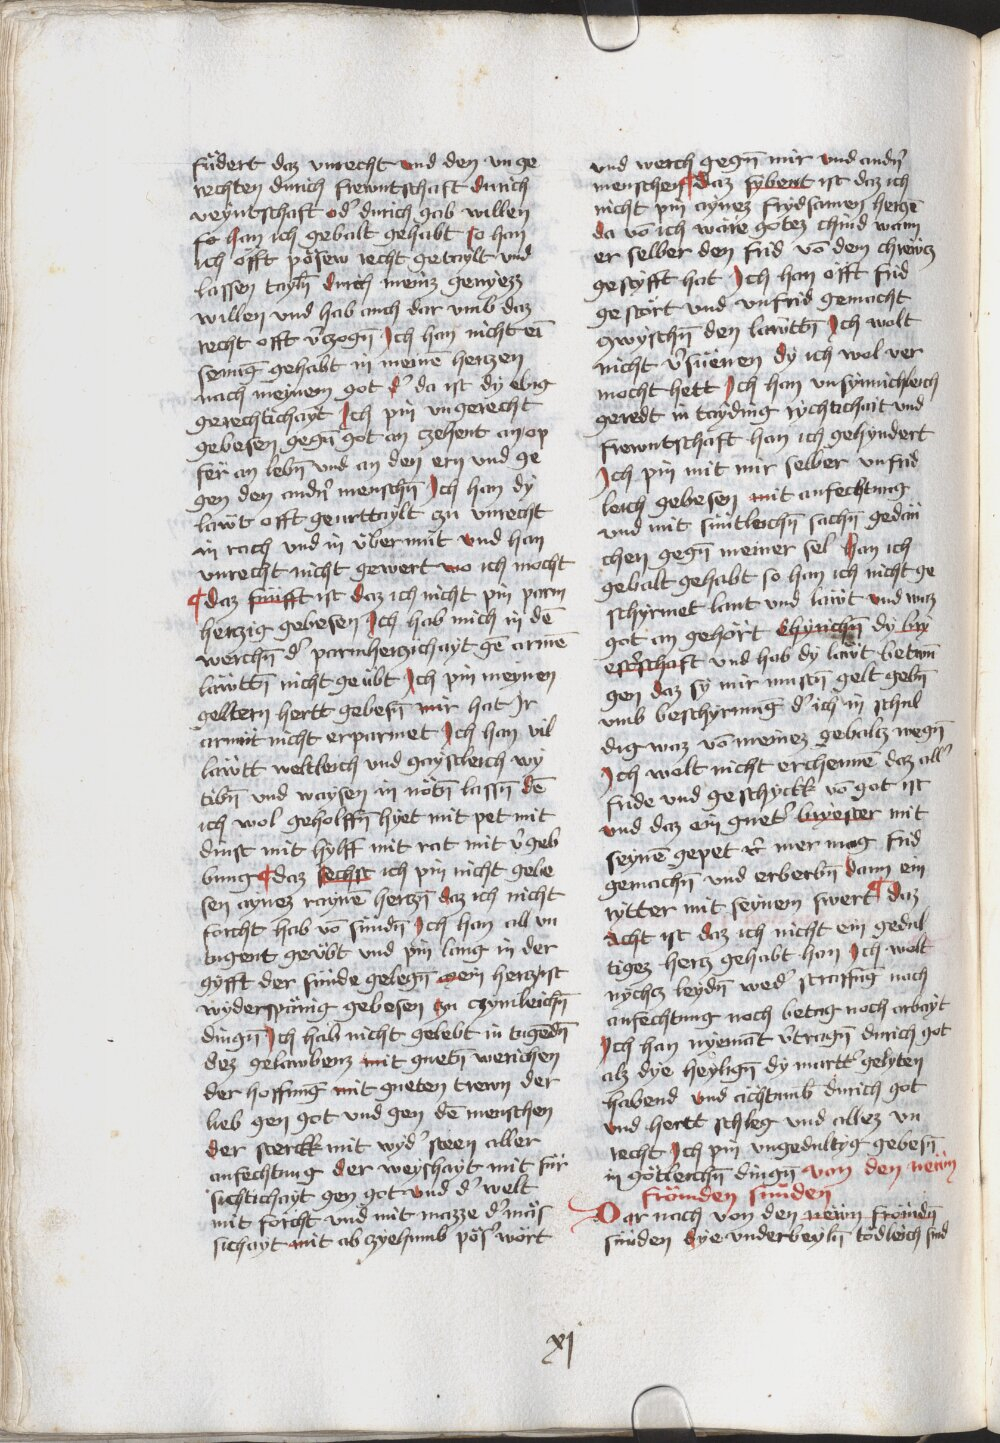 fűdert daz vnrecht vnd den vn ge
rechten durich frewntschaft durich
veyntschaft od' durich gab willen
so han ich gebalt gehabt so han
ich offt pösew recht getaylt vnd
lassen tayln̄ durch meinz geniezz
willen vnd hab auch dar vmb daz
recht offt v'czogn̄ Ich han nicht ei
semig gehabt in meinē herczen
nach meynem got d' da ist dy ebig
gerechtichayt Ich pin vngerecht
gebesen gegn̄ got an czehent an op
fer an lebn̄ vnd an den ern vnd ge
gen den andn̄ menschn̄ Ich han dy
lawt offt geurttaylt zu vnrecht
in rach vnd in übermüt vnd han
vnrecht nicht gewert wo ich mocht
¶ daz fünfft ist daz ich nicht pin parm
herczig gebesen Ich hab mich in dē
werchn̄ d' parmherczichayt gē armē
lawttn̄ nicht geübt Ich pin meynen
geltern hertt gebesn̄ mir hat Ir
armüt nicht erparmet Ich han vil
lawtt weltleich vnd gaystleich wy
tibn̄ vnd waysen in nötn̄ lassn̄ dē
ich wol geholffn̄ hyet mit pet mit
dinst mit hylff mit rat mit v'geb
bung ¶ daz sechst ich pin nicht gebe
sen aynez raynē hercz̄n daz ich nicht
forcht hab vō sündn̄ Ich han all vn
tugent geübt vnd pin lang in der
gyfft der sünde gelegn̄ mein hercz ist
wyderspänig gebesen zu czymleichn̄
dingn̄ Ich hab nicht gelebt in tugēdn̄
dez gelawbenz mit guetn̄ werichen
der hoffnūg mit gueten trewn der
lieb gen got vnd gen dē menschen
der sterckk mit wyd' steen aller
anfechtung der weyshayt mit für
sichtichayt gen got vnd d' welt
mit forcht vnd mit mazze d' mäs
sichayt mit ab czyehunb pös' wört
vnd werch gegn̄ mir vnd andn̄
menschen ¶ daz sybent ist daz ich
nicht pin aynez frydsamen herczē
da vō ich wäre gotez chind wann
er selber den frid vō dem chrewcz
gestyfft hat Ich han offt frid
gestört vnd vnfrid gemacht
czwyschn̄ den lawttn̄ Ich wolt
nicht v'süenen dy ich wol ver
mocht hett Ich han vnsynnichleich
geredt in tayding rychtichait vnd
frewntschaft han ich gehyndert
Ich pin mit mir selber vnfrid
leich gebesen mit anfechtung
vnd mit süntleichn̄ sachn̄ gedan
chen gegn̄ meiner sel Han ich
gebalt gehabt so han ich nicht ge
schyrmet lant vnd lawt vnd waz
got an gehört chyrichn̄ dy bry
est'schaft vnd hab dy lawt betwu
gen daz sy mir mustn̄ gelt gebn̄
vmb beschyrmūg d' ich in schul
dig waz vō meinez gebalcz wegn̄
Ich wolt nicht erchennē daz all'
fride vnd geschyckk vō got ist
vnd daz ein guet' bryester mit
seynē gepet mer mag frid
gemachn̄ vnd erberbn̄ dann ein
rytter mit seynem swert ¶ daz
Acht ist daz ich nicht ein gedul
tigez hercz gehabt han Ich wolt
nychcz leydn̄ wed' straffūg nach
anfechtung noch betag noch arbayt
Ich han nyemāt v'tragn̄ durich got
alz dye heyligen dy martt' gelyten
habend vnd ächtumb durich got
vnd hertt schleg vnd allez vn
recht Ich pin vngedultyg gebesn̄
in götleichn̄ dingn̄ von den newn
frömden sünden
Dar nach von den newn frömdn̄
sünden dye vnderbeyln̄ tödleich sind
xj